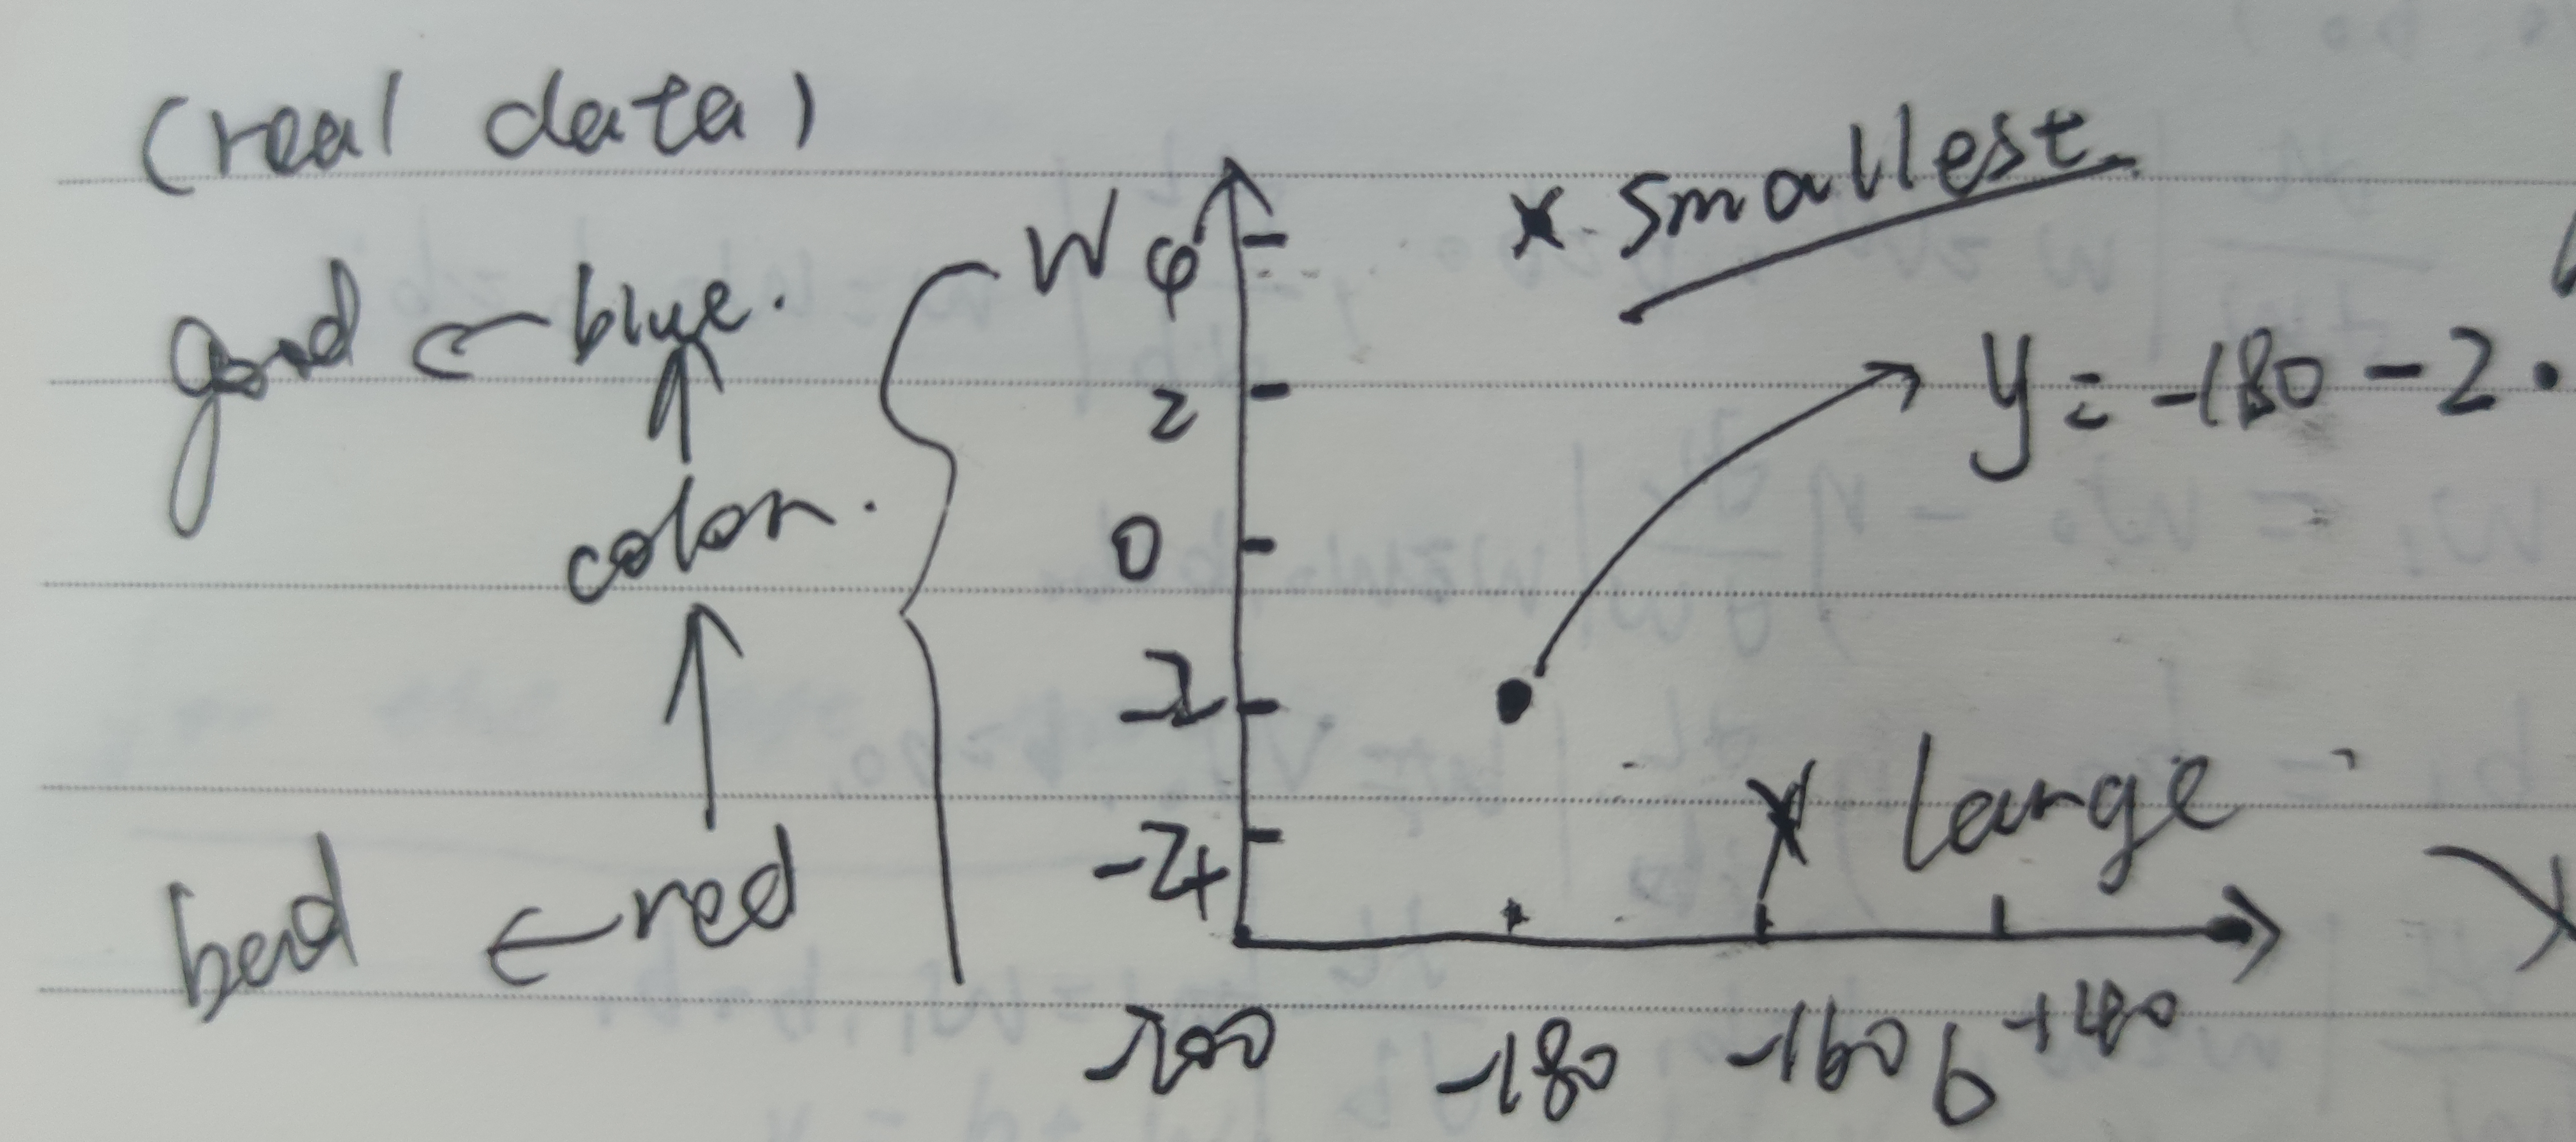 (real data)
W 4
x smallest
good ← blue.
2
y = -180 - 2 ·
color.
0
-2
x large
-4
bad ← red
-200 -180 -160 b -140